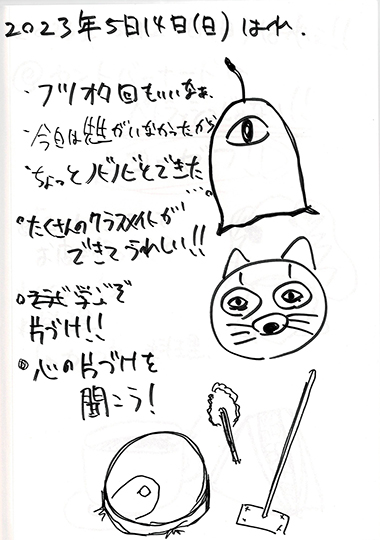 2023年5日14日(日) はれ.
・フツオク回もいいなぁ、
・今日は生がいなかったから
ちょっとノビノビとできた…。
たくさんのクラスメイトが
できてうれしい!!
学ぶぞ
片づけ!!
心の片づけを
聞こう!